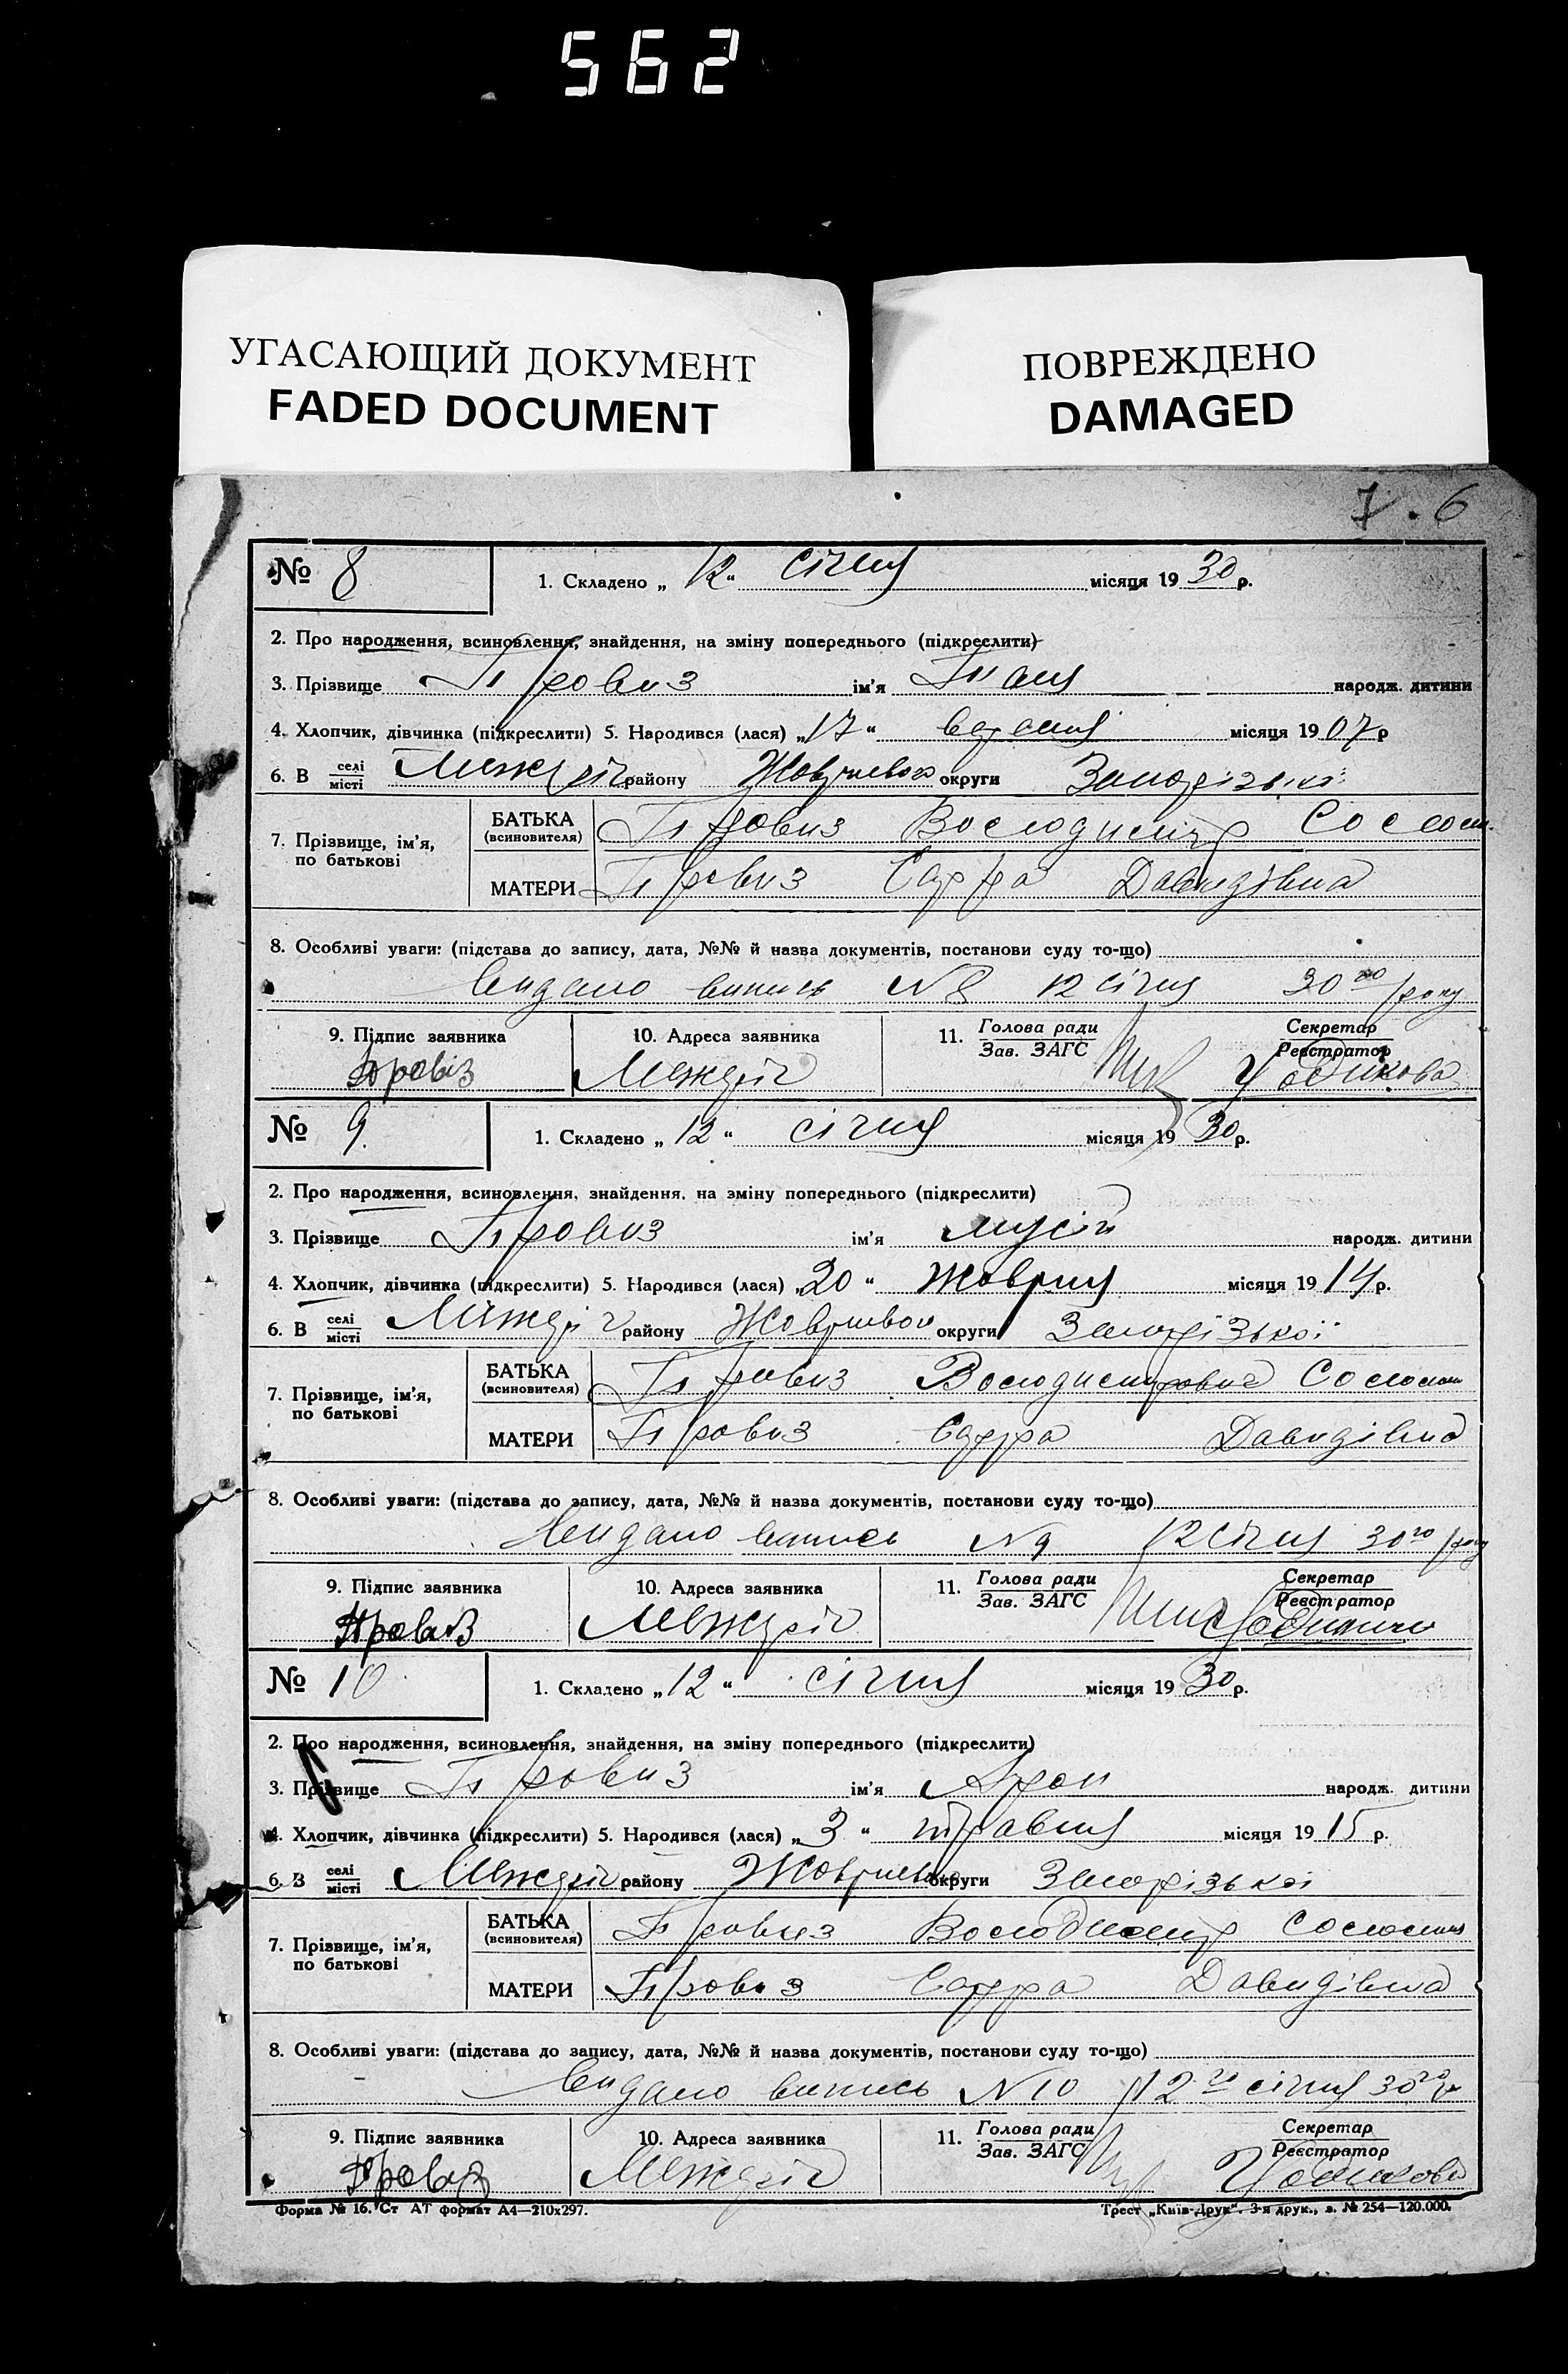 562
УГАСАЮЩИЙ ДОКУМЕНТ
FADED DOCUMENT
ПОВРЕЖДЕНО
DAMAGED
7. 6
№ 8 1. Складено „ 12 “ січня місяця 19 30 р.
2. Про народження, всиновлення, знайдення, на зміну попереднього (підкреслити)
3. Прізвище Провиз ім'я народж. дитини
4. Хлопчик, дівчинка (підкреслити) 5. Народився (лася) „ 17 “ місяця 19 07 р
6. В селі/місті Межеріч району округи Запорізькі
7. Прізвище, ім'я, по батькові
БАТЬКА (всиновителя) Провиз Володимир Солом.
МАТЕРИ Провиз Сарра Давидівна
8. Особливі уваги: (підстава до запису, дата, №№ й назва документів, постанови суду то-що)
Видано випись N 8 12 січня 30 го року
9. Підпис заявника 10. Адреса заявника 11. Голова ради/Зав. ЗАГС Секретар/Реєстратор
Провіз Межеріч
№ 9. 1. Складено „ 12 “ січня місяця 19 30 р.
2. Про народження, всиновлення, знайдення, на зміну попереднього (підкреслити)
3. Прізвище Провиз ім'я Мусій народж. дитини
4. Хлопчик, дівчинка (підкреслити) 5. Народився (лася) „ 20 “ Жовтня місяця 19 14 р.
6. В селі/місті Міжеріч району округи Запорізької
7. Прізвище, ім'я, по батькові
БАТЬКА (всиновителя) Провиз Володимирович Соломон
МАТЕРИ Провиз Сарра Давидівна
8. Особливі уваги: (підстава до запису, дата, №№ й назва документів, постанови суду то-що)
Видано випись N 9 12 січня 30 го року
9. Підпис заявника 10. Адреса заявника 11. Голова ради/Зав. ЗАГС Секретар/Реєстратор
Провиз Межеріч
№ 10 1. Складено „ 12 “ січня місяця 19 30 р.
2. Про народження, всиновлення, знайдення, на зміну попереднього (підкреслити)
3. Прізвище Провиз ім'я Арон народж. дитини
4. Хлопчик, дівчинка (підкреслити) 5. Народився (лася) „ 3 “ травня місяця 19 15 р.
6. В селі/місті Межеріч району округи Запорізької
7. Прізвище, ім'я, по батькові
БАТЬКА (всиновителя) Провиз Володимир
МАТЕРИ Провиз Сарра Давидівна
8. Особливі уваги: (підстава до запису, дата, №№ й назва документів, постанови суду то-що)
Видано випись N 10 12 го січня 30 го р
9. Підпис заявника 10. Адреса заявника 11. Голова ради/Зав. ЗАГС Секретар/Реєстратор
Провиз Межеріч
Форма № 16. Ст АТ формат А4—210х297. Трест „Київ-Друк“. 3-я друк., з. № 254—120.000.